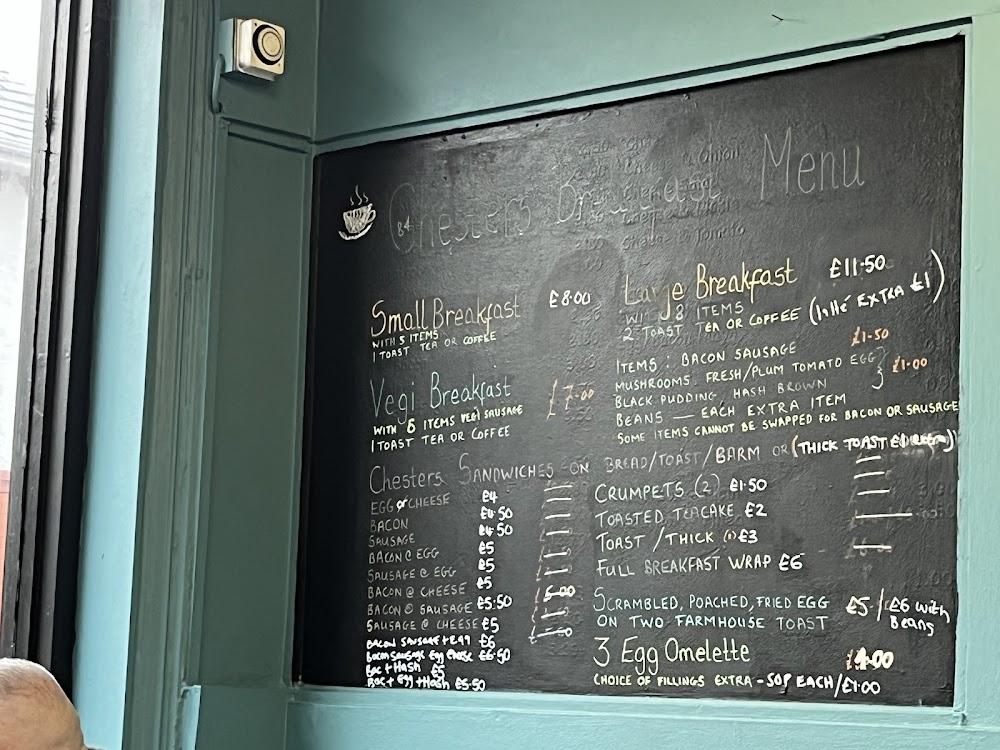 Chesters Breakfast Menu
Small Breakfast £8.00
WITH 5 ITEMS
1 TOAST TEA OR COFFEE
Vegi Breakfast £7.00
WITH 6 ITEMS VEGI SAUSAGE
1 TOAST TEA OR COFFEE
Large Breakfast £11.50
WITH 8 ITEMS
2 TOAST TEA OR COFFEE (latté EXTRA £1)
ITEMS: BACON SAUSAGE £1.50
MUSHROOMS FRESH/PLUM TOMATO EGG
BLACK PUDDING, HASH BROWN £1.00
BEANS — EACH EXTRA ITEM
SOME ITEMS CANNOT BE SWAPPED FOR BACON OR SAUSAGE
Chesters SANDWICHES ON BREAD/TOAST/BARM OR (THICK TOASTED
EGG or CHEESE £4
BACON £4.50
SAUSAGE £4.50
BACON @ EGG £5
SAUSAGE @ EGG £5
BACON @ CHEESE £5
BACON @ SAUSAGE £5.50
SAUSAGE @ CHEESE £5
BACON SAUSAGE + EGG £6
Bacon Sausage Egg Cheese £6.50
Bac + Hash £5
Bac + Egg + Hash £5.50
CRUMPETS (2) £1.50
TOASTED TEACAKE £2
TOAST / THICK (1) £3
FULL BREAKFAST WRAP £6
SCRAMBLED, POACHED, FRIED EGG £5 / £6 with
ON TWO FARMHOUSE TOAST Beans
3 Egg Omelette £4.00
CHOICE OF FILLINGS EXTRA - 50P EACH/£1.00